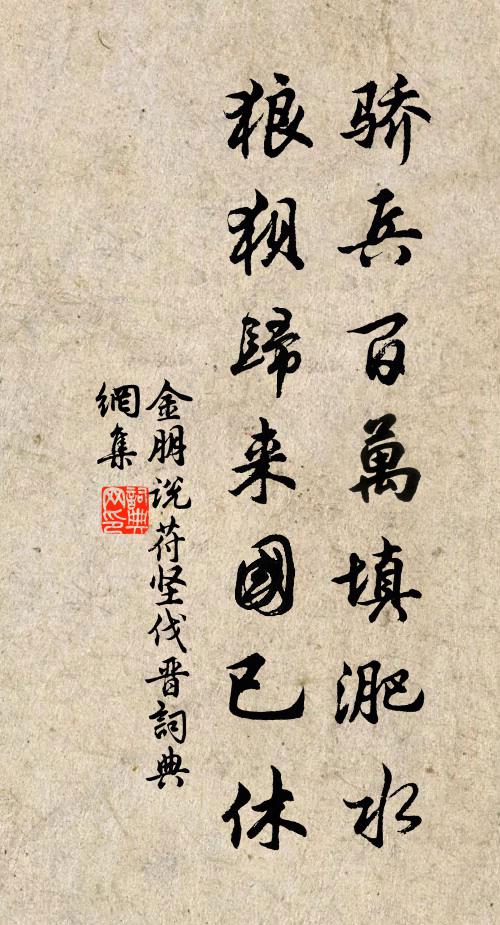 骄兵百萬填淝水
狼狽歸来國已休
金朋说苻坚伐晋詞典
網集
詞典
网印